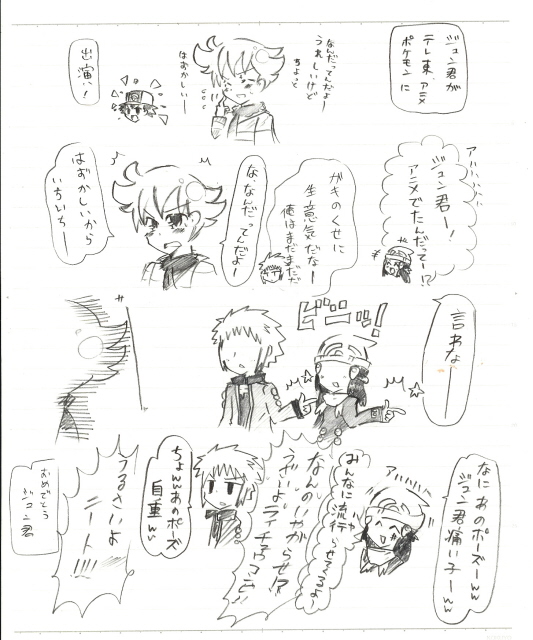 ジュン君が
テレ東アニメ
ポケモンに
なんだってんだよー
うれしいけど
ちょっと
はずかしいー
出演!!
アハハハハハ
ジュン君ー!
アニメでたんだってー!?
ガキのくせに
生意気だなー
俺はまだまだだ
ななんだってんだよー
はずかしいから
いちいちー
言わなーー
ビシッ!
なにあのポーズーww
ジュン君痛い子ーww
アハハハ
みんなに流行らせてくるよー
なんのいやがらせ!?
うぜーよ
ちょwwあのポーズ
自重ww
うるさいよ
ニート!!!!
おめでとう
ジュン君